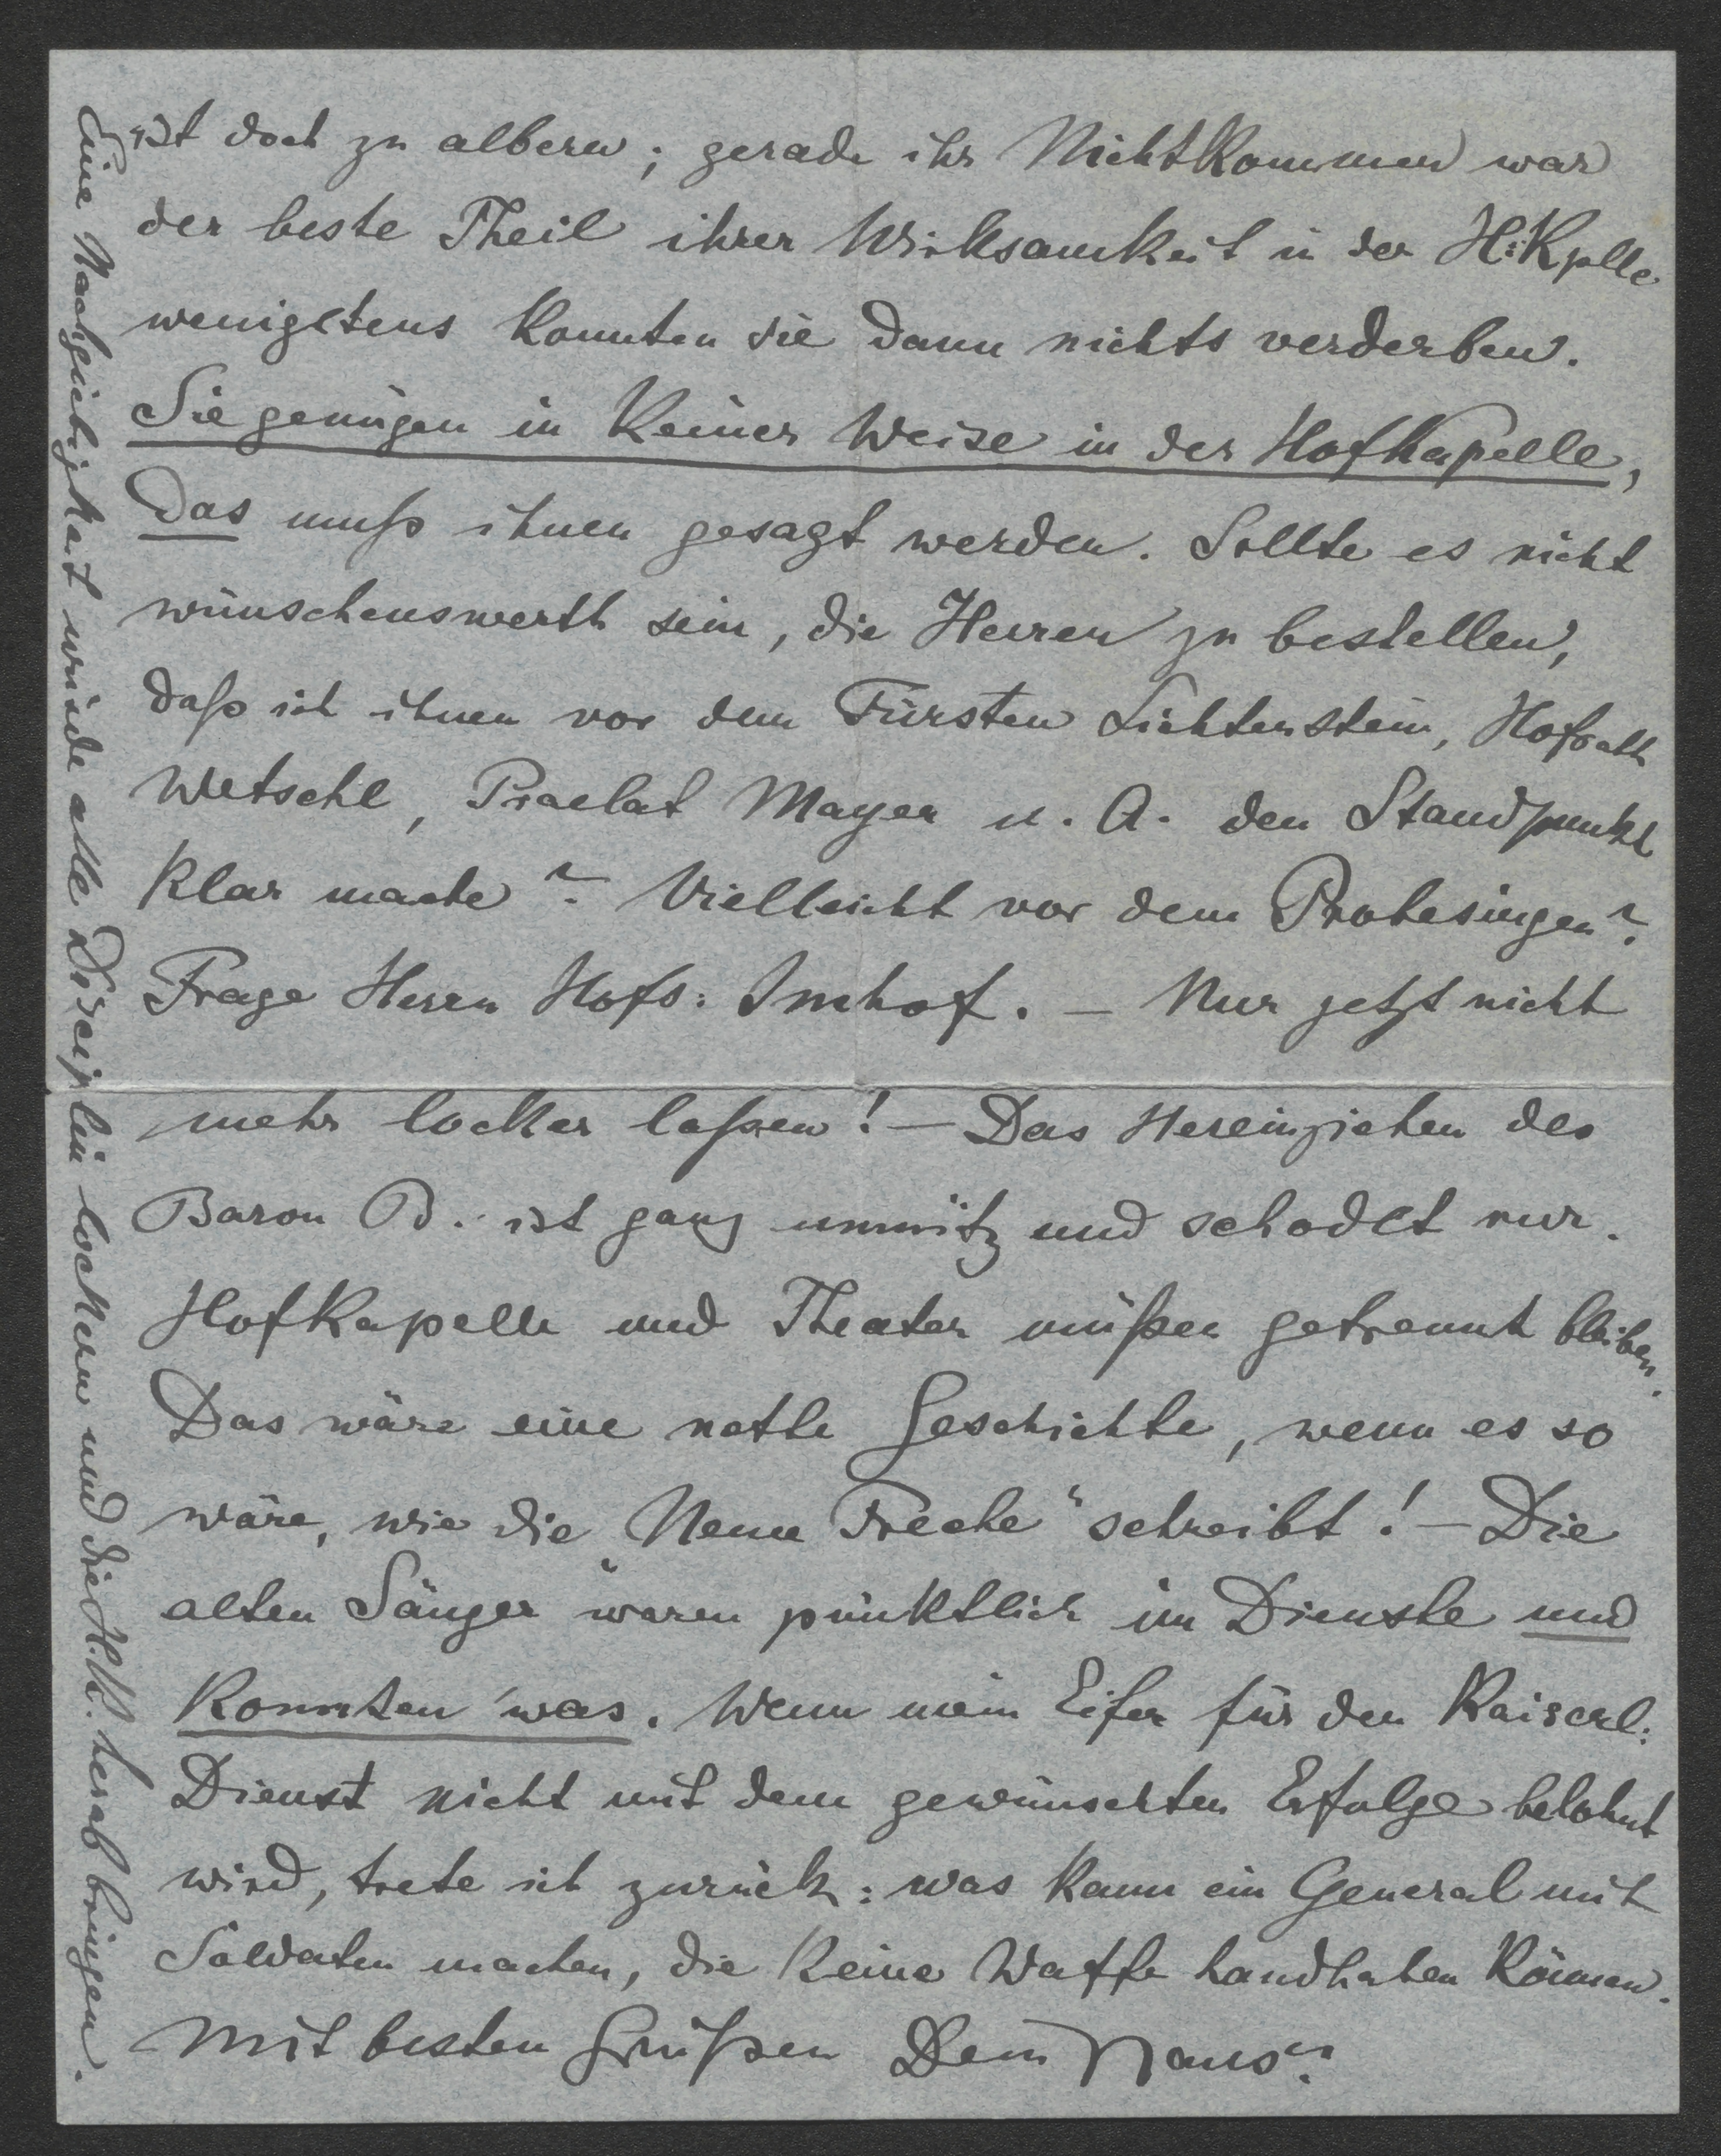 ist doch zu albern; gerade ihr Nichtkommen war
der beste Theil ihrer Wirksamkeit in der H:Kplle
wenigstens konnten sie dann nichts verderben.
Sie genügen in keiner Weise in der Hofkapelle,
Das muß ihnen gesagt werden. Sollte es nicht
wünschenswerth sein, die Herren zu bestellen,
daß ich ihnen vor dem Fürsten Lichtenstein, Hofrath
Wetschl, Praelat Mayer u. A. den Standpunkt
klar mache? Vielleicht vor dem Probesingen?
Frage Herrn Hofr: Imhof. — Nur jetzt nicht
mehr locker laßen! — Das Hereinziehen des
Baron B. ist ganz unnütz und schadet nur.
Hofkapelle und Theater müßen getrennt bleiben.
Das wäre eine nette Geschichte, wenn es so
wäre, wie die „Neue Freche“ schreibt! — Die
alten Sänger waren pünktlich im Dienste und
konnten 'was. Wenn mein Eifer für den Kaiserl:
Dienst nicht mit dem gewünschten Erfolge belohnt
wird, trete ich zurück: was kann ein General mit
Soldaten machen, die keine Waffe handhaben können.
Mit besten Grüßen Dein Hans
Eine Nachgiebigkeit würde alle Disciplin lockern und die H.K. herab bringen.